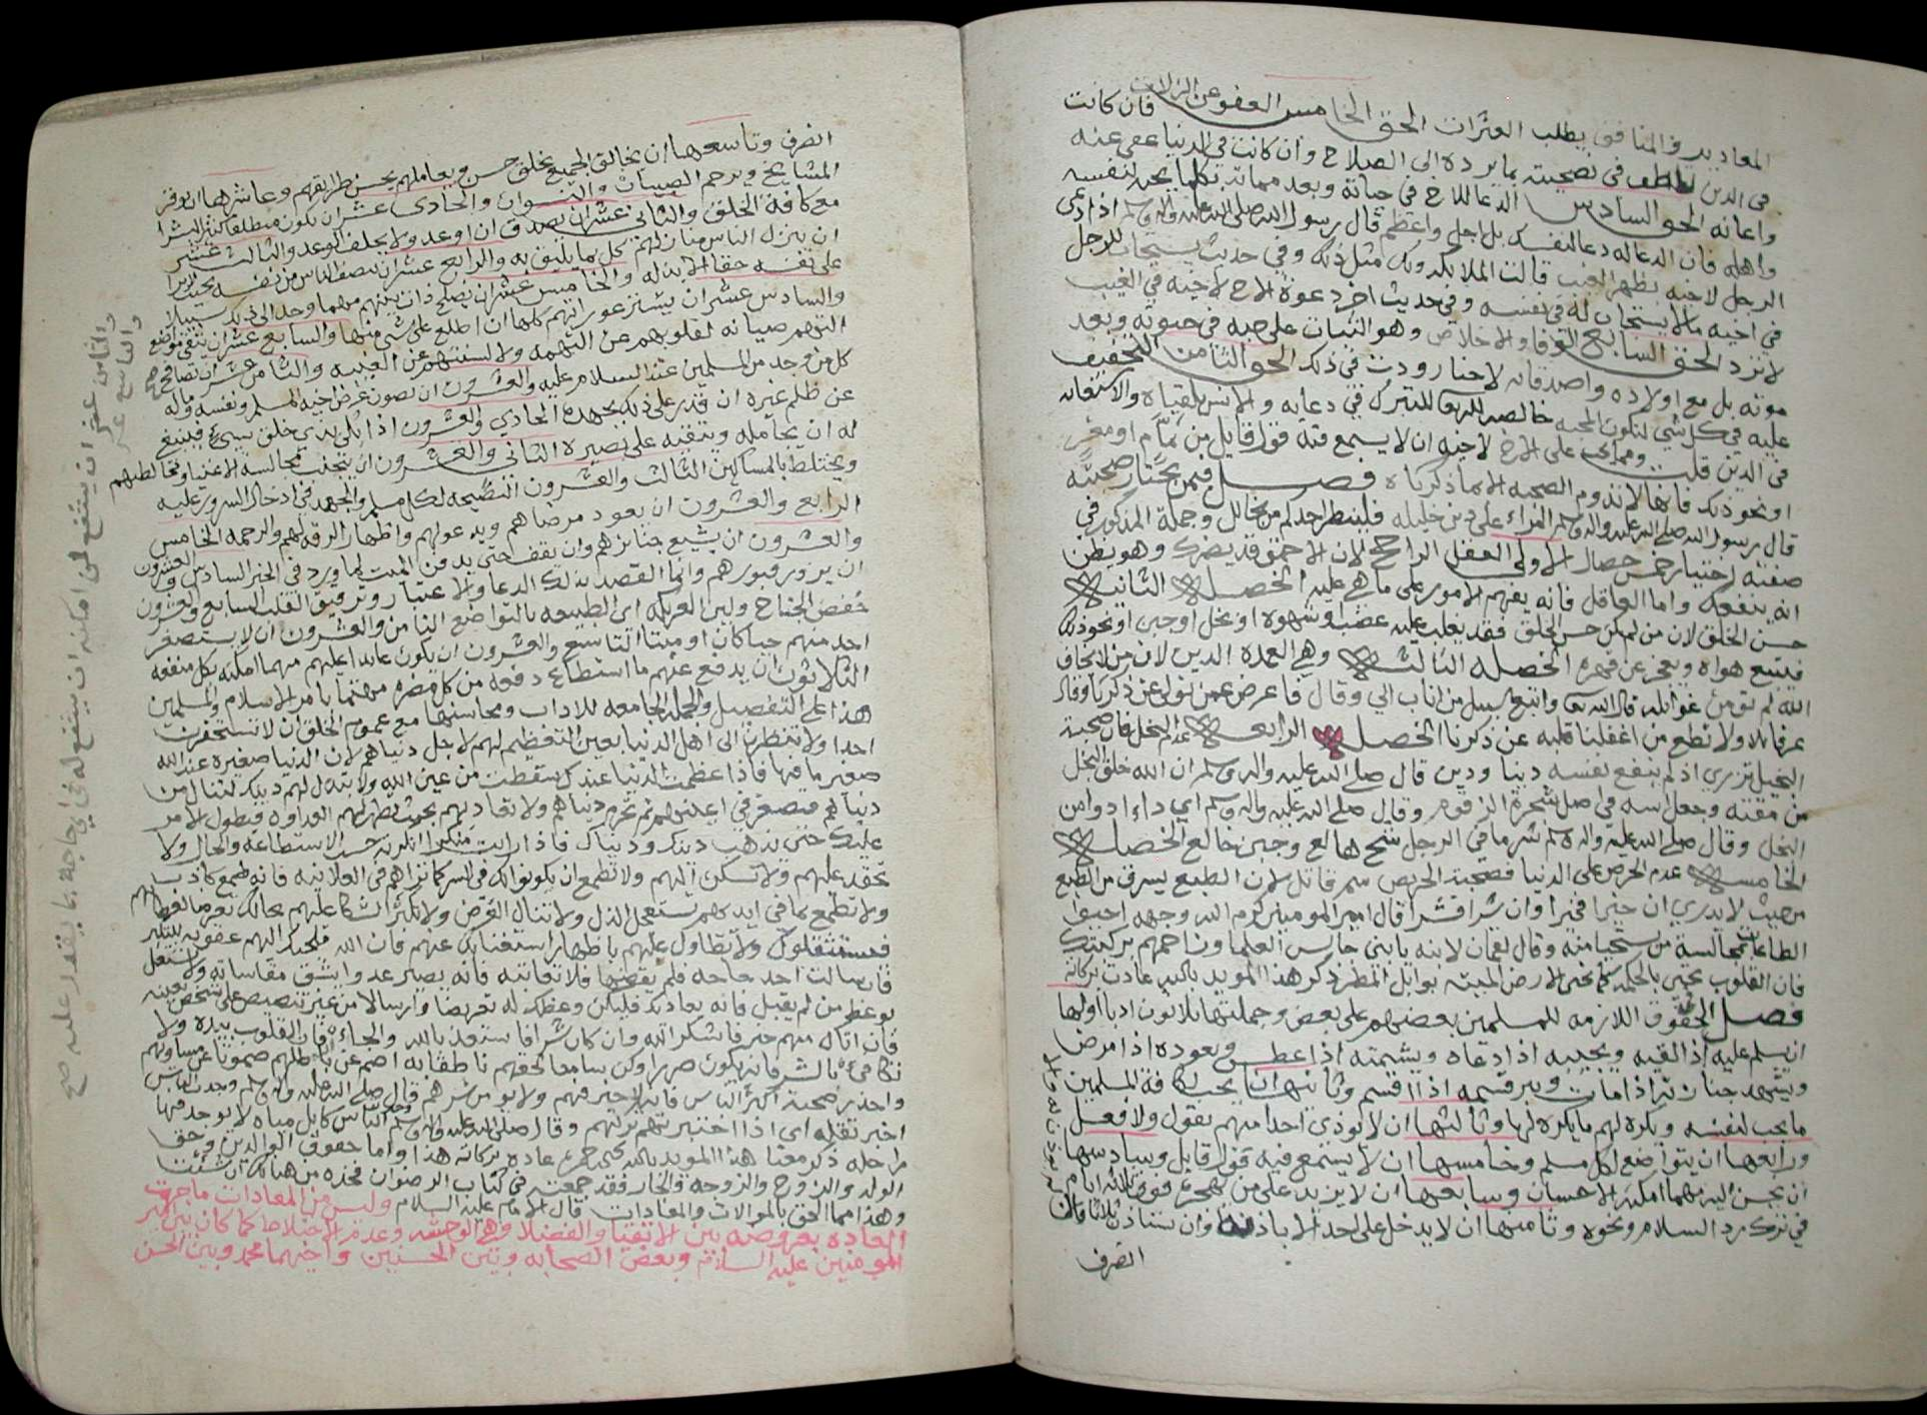 المعاذير والمنافق يطلب العثرات الحق الخامس العفو عن الزلات فان كانت
في الدين تلطف في نصيحته بما يرده الى الصلاح وان كانت في الدنيا عفى عنه
واعانه الحق السادس الدعا للاخ في حياته وبعد مماته بكلما يحبه لنفسه
واهله فان الدعا له دعا لنفسك بل اجل واعظم قال رسول الله صلى الله عليه واله وسلم اذا دعى
الرجل لاخيه بظهر الغيب قالت الملائكة ولك مثل ذلك وفي حديث يستجاب للرجل
في اخيه ما لا يستجاب له في نفسه وفي حديث اخر دعوة الاخ لاخيه في الغيب
لا ترد الحق السابع الوفا والاخلاص وهو الثبات على حبه في حيوته وبعد
موته بل مع اولاده واصدقائه لاخبار وردت في ذلك الحق الثامن التخفيف
عليه في كل شي لتكون المحبه خالصه لله تعالى للتبرك في دعائه والانس بلقياه والاستعانه
في الدين قلت ومما يجب على الاخ لاخيه ان لا يسمع فيه قول قايل من نمام او مغتر
او نحو ذلك فانها لا تدوم الصحبه الا بما ذكرناه فصل فيمن يختار صحبته
قال رسول الله صلى الله عليه واله وسلم المراء على دين خليله فلينظر احدكم من يخالل وجملة المذكور في
صفته اختيار خمس خصال الاولى العقل الراجح لان الاحمق قد يضرك وهو يظن
انه ينفعك واما العاقل فانه يفهم الامور على ما هي عليه الخصله الثانيه
حسن الخلق لان من لم يكن حسن الخلق فقد يغلب عليه غضب او شهوة او بخل او جبن او نحو ذلك
فيتبع هواه ويعجز عن قهره الخصله الثالثه وهي العمده الدين لان من لا يخاف
الله لم تؤمن غوائله قال الله تعالى واتبع سبيل من اناب الي وقال فاعرض عمن تولى عن ذكرنا وقال
عز قائلا ولا تطع من اغفلنا قلبه عن ذكرنا الخصله الرابعه عدم البخل فان صحبة
البخيل تزري اذ لم ينفع نفسه دنيا ودين قال صلى الله عليه واله وسلم ان الله خلق البخل
من مقته وجعل اسه في اصل شجرة الزقوم وقال صلى الله عليه واله وسلم اي داء ادوا من
البخل وقال صلى الله عليه واله وسلم شر ما في الرجل شح هالع وجبن خالع الخصله
الخامسه عدم الحرص على الدنيا فصحبة الحريص سم قاتل لان الطبع يسرق من الطبع
من حيث لا يدري ان خيرا فخيرا وان شرا فشرا قال امير المومنين كرم الله وجهه احيوا
الطاعات بمجالسة من يستحيا منه وقال لقمان لابنه يا بني جالس العلما وزاحمهم بركبتيك
فان القلوب تحيى بالحكمه كما تحيى الارض الميته بوابل المطر ذكر هذا المويد بالله عادت بركاته
فصل الحقوق اللازمه للمسلمين بعضهم على بعض وجملتها ثلاثون ادبا اولها
ان يسلم عليه اذا لقيه ويجيبه اذا دعاه ويشمته اذا عطس ويعوده اذا مرض
ويشهد جنازته اذا مات ويبر قسمه اذا اقسم وثانيها ان يحب لكافة المسلمين
ما يحب لنفسه ويكره لهم ما يكره لها وثالثها ان لا يوذي احدا منهم بقول ولا فعل
ورابعها ان يتواضع لكل مسلم وخامسها ان لا يسمع فيه قول قايل وسادسها
ان يحسن اليه مهما امكنه الاحسان وسابعها ان لا يزيد على من هجره فوق ثلاثة ايام
في ترك رد السلام ونحوه وثامنها ان لا يدخل على احد الا باذنه وان يستاذن ثلاثا فان
انصرف
انصرف وتاسعها ان يخالق الجميع بخلق حسن ويعاملهم بحسن طرايقهم وعاشرها ان يوقر
المشايخ ويرحم الصبيان والنسوان والحادي عشر ان يكون منطلقا كثير البشر
مع كافة الخلق والثاني عشر ان يصدق ان اوعد ولا يخلف الوعد والثالث عشر
ان ينزل الناس منازلهم كل بما يليق به والرابع عشر ان ينصف الناس من نفسه بحيث لا يرا
على نفسه حقا الا بذله والخامس عشر ان يصلح ذات بينهم مهما وجد الى ذلك سبيلا
والسادس عشر ان يستر عوراتهم كلها ان اطلع على شي منها والسابع عشر ان يتقي مواضع
التهم صيانه لقلوبهم عن التهمه ولالسنتهم عن الغيبه والثامن عشر ان يصافح
كل من وجد من المسلمين عند السلام عليه والعشرون ان يصون عرض اخيه المسلم ونفسه وماله
عن ظلم غيره ان قدر على ذلك بجهده الحادي والعشرون اذا بلي بذي خلق سيئ فينبغي
له ان يجامله ويتقيه على بصيرة الثاني والعشرون ان يتجنب مجالسه الاغنيا ومخالطتهم
ويختلط بالمساكين الثالث والعشرون النصيحه لكل مسلم والجهد في ادخال السرور عليه
الرابع والعشرون ان يعود مرضاهم ويدعو لهم واظهار الرقه لهم والرحمه الخامس
والعشرون ان يشيع جنائزهم وان يقف حتى يدفن الميت لما ورد في الخبر السادس والعشرون
ان يزور قبورهم وانما القصد بذلك الدعا والاعتبار وترقيق القلب السابع والعشرون
خفض الجناح ولين العريكه اي الطبيعه بالتواضع الثامن والعشرون ان لا يستصغر
احد منهم حيا كان او ميتا التاسع والعشرون ان يكون عايدا عليهم مهما امكنه بكل منفعه
الثلاثون ان يدفع عنهم ما استطاع دفعه من كل مضره مهتما بامر الاسلام والمسلمين
هذا على التفصيل والجمله الجامعه للاداب ومحاسنها مع عموم الخلق ان لا تستحقرن
احدا ولا تنظرن الى اهل الدنيا بعين التعظيم لهم لاجل دنياهم لان الدنيا صغيره عند الله
صغير ما فيها فاذا عظمت الدنيا عندك سقطت من عين الله ولا تبذل لهم دينك لتنال من
دنياهم فتصغر في اعينهم ثم تحرم دنياهم ولا تعاديهم بحيث تظهر لهم العداوه فيطول الامر
عليك حتى يذهب دينك ودنياك فاذا رايت منكرا انكرته حسب الاستطاعه والحال ولا
تحقد عليهم ولا تسكن اليهم ولا تطمع ان يكونوا لك في السر كما تراهم في العلانيه فانه طمع كاذب
ولا تطمع بما في ايديهم تستعجل الذل ولا تنال الغرض ولا تكثر الشكا عليهم بحالك
فيستثقلوك ولا تطاول عليهم باظهار استغنائك عنهم فان الله يلجئك اليهم عقوبه للتكبر
فان سالت احد حاجه فلم يقضها فلا تعاتبه فانه يصير عدوا يشق مقاساته ولا تشتغل
بوعظ من لم يقبل فانه يعاديك فليكن وعظك له تعريضا وارسالا من غير تنصيص على شخص بعينه
فان اتاك منهم خير فاشكر الله وان كان شر افاستعذ بالله والجاء فان القلوب بيده ولا
تكافئ بالشر فانه يكون ضررا وكن سامعا لحقهم ناطقا به اصم عن باطلهم صموتا عن مساويهم
واحذر صحبة اكثر الناس فانه لا خير فيهم ولا يومن شرهم قال صلى الله عليه واله وسلم وجدت الناس
اخبر تقله اي اذا اختبرتهم تركتهم وقال صلى الله عليه واله وسلم وجد الناس كابل مياه لا يوجد فيها
راحله ذكر معنا هذا المويد بالله يحيى حمزه عاده بركاته هذا واما حقوق الوالدين وحق
الولد والزوج والزوجه والجار فقد جمعته في كتاب الرضوان فخذه من هنالك ان شئت
وهذا مما الحق بالموالات والمعادات قال الامام عليه السلام وليس من المعادات ما جرت
العاده بعروضه بين الاتقيا والفضلا وهي الوحشه وعدم الاختلاط كما كان بين امير
المومنين عليه السلام وبعض الصحابه وبين الحسنين واخيهما محمد وبين الحسن
والثامن عشر ان يشفع لمن امكنه ان يشفع له في اي حاجة بما يقدر عليه صح
والتاسع عشر